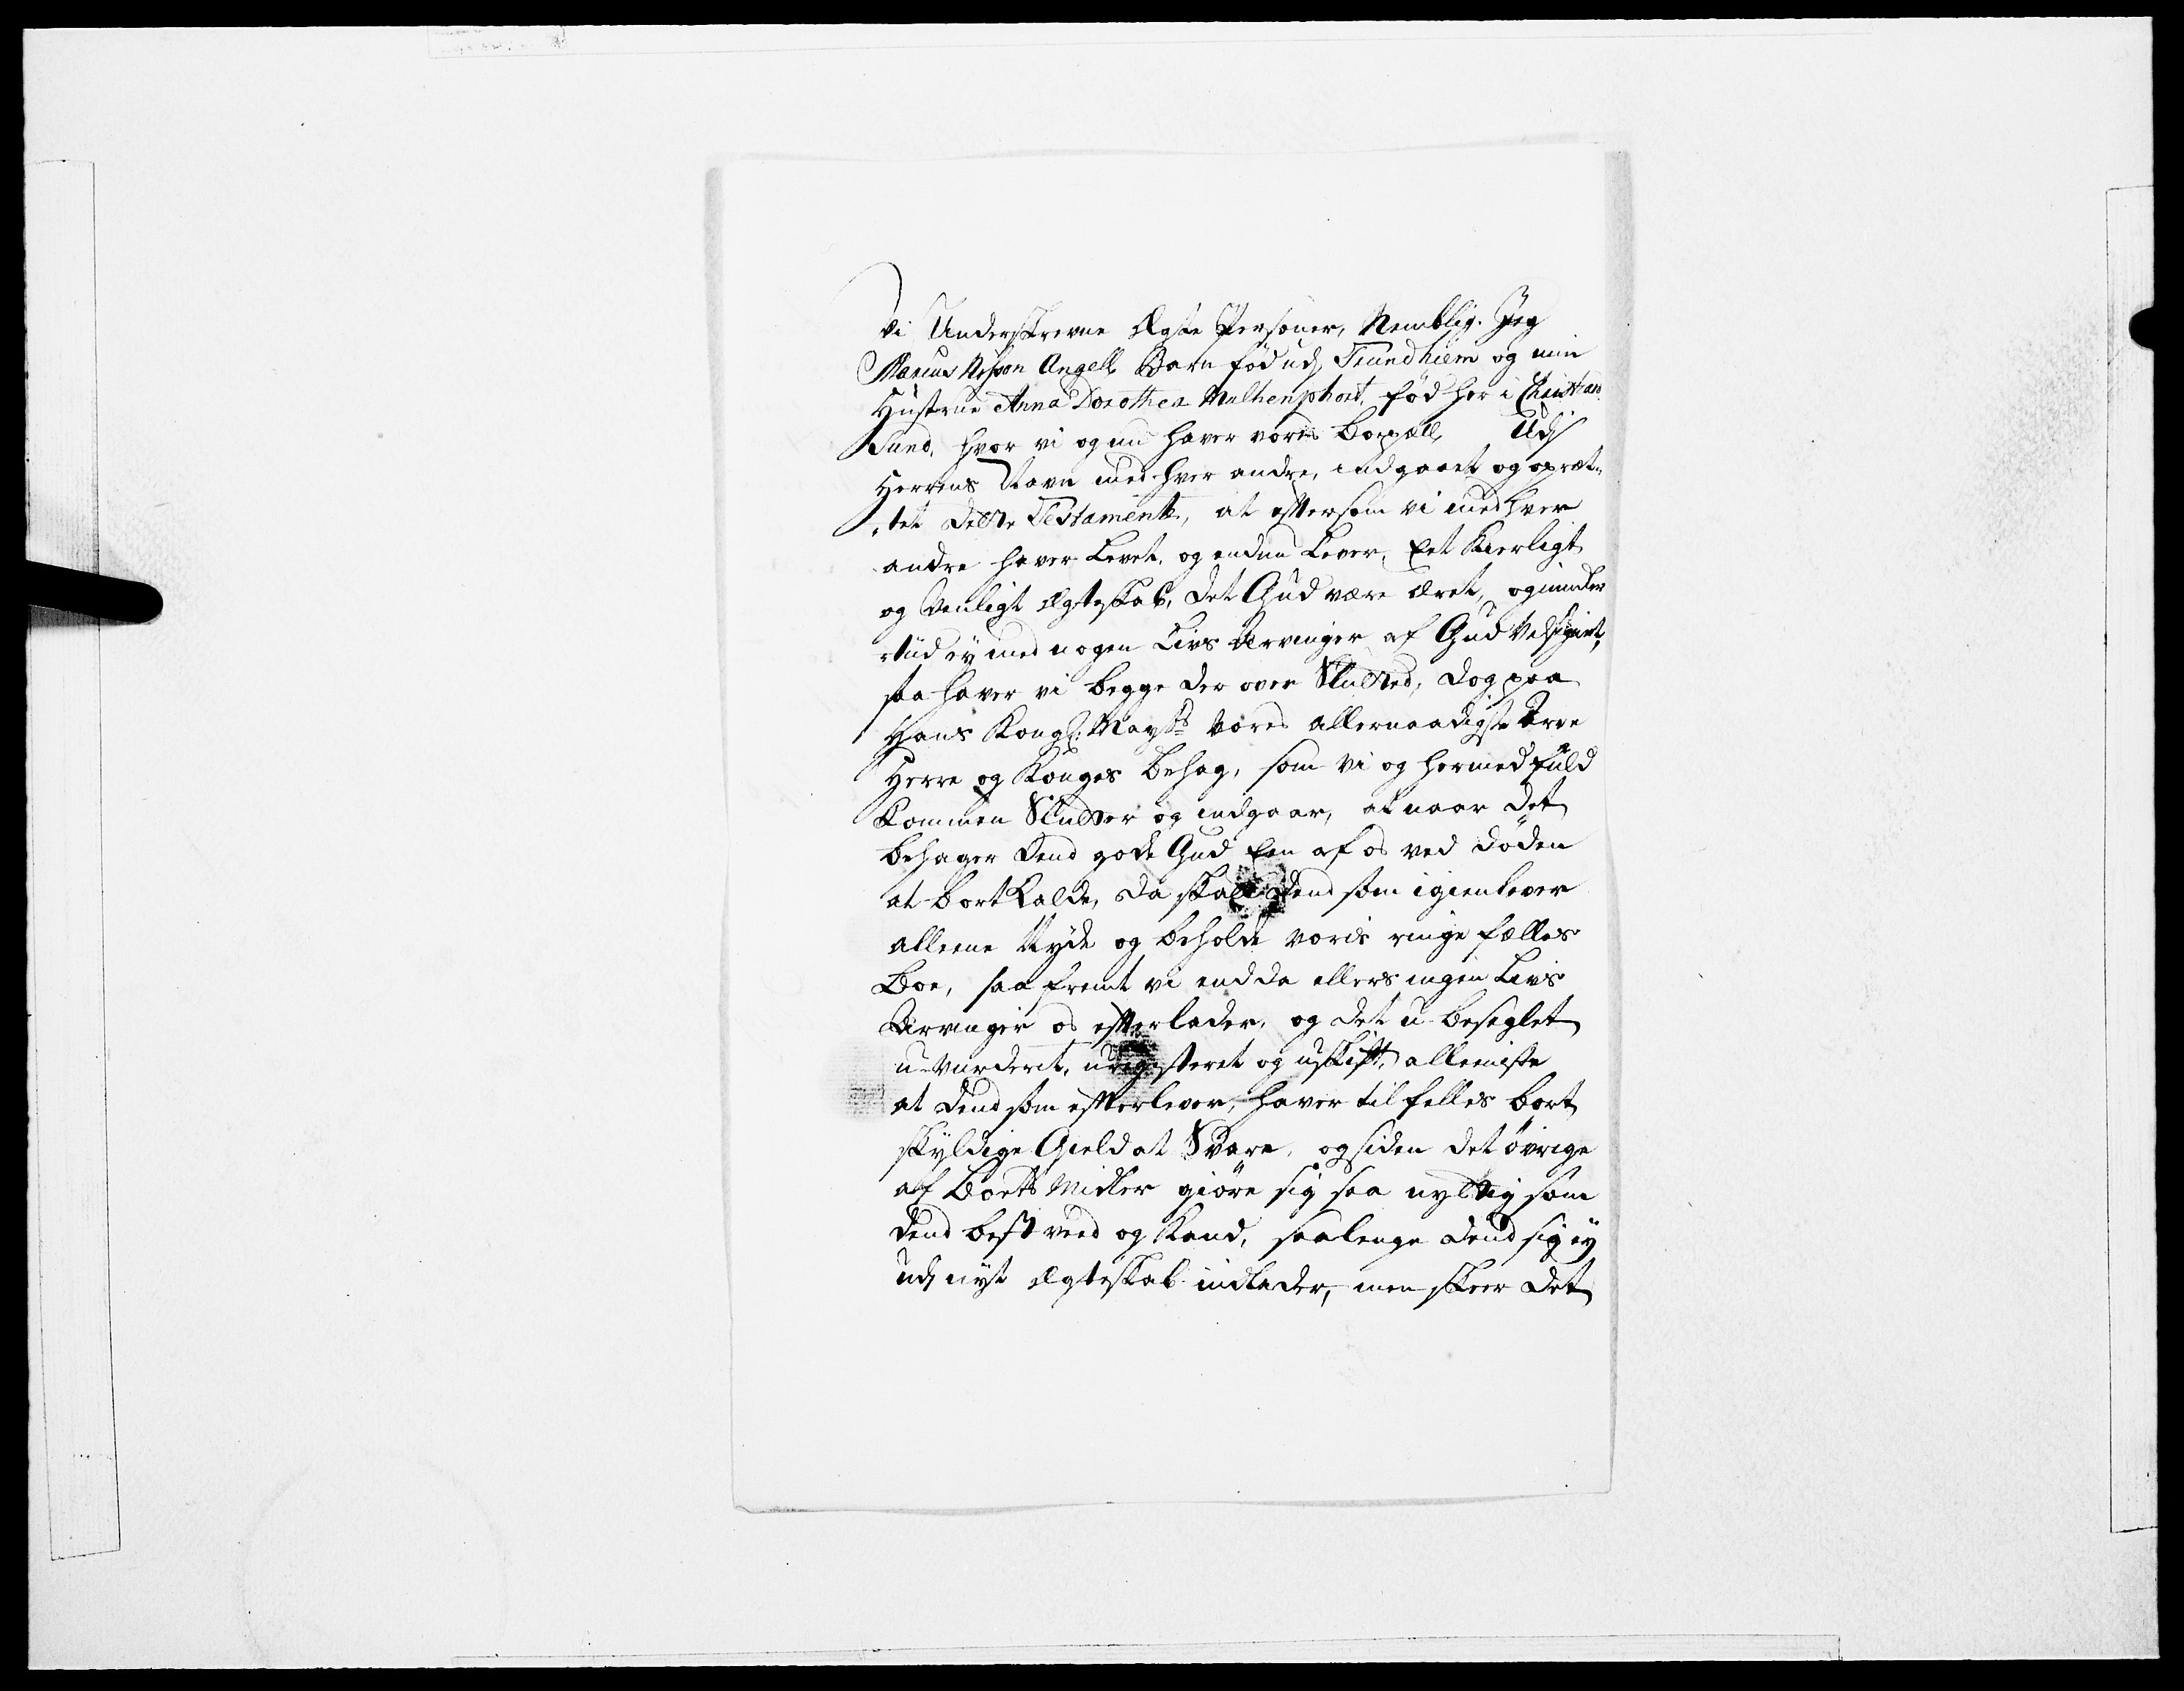 Vi Underskrevne Ægte Personer, Nemblig. Jeg
Marcus Nilsøn Angell, Barn fød udj Trundhiem og min
Hustrue Anna Dorothea Mulhenphort, fød her i Christian
Sund, hvor vi og nu haver voris boepæll, Udj
Herrens Navn med hver andre, indgaaet og opræt„
„tet dette Testamente, at efftersom vi med hver
andre haver Levet, og endnu Lever, Eet Kierligt
og Venligt Ægteskab, det Gud være æret, og under
„tiid ey med nogen Livs Arvinger af Gud Velsignet,
saa haver vi begge der over Slutted, dog paa
Hans Kongl: Mayts vores allernaadigste Arve
Herre og Konges behag, som vi og hermed fuld
Kommen Slutter og indgaar, at naar det
behager dend gode Gud Een af os ved døden
at bortkalde, da skall dend som igienlever
alleene Nyde og beholde voris ringe fælles
Boe, saa fremt vi endda ellers ingen Livs
Arvinger os effterlader, og det u-beseglet
u-vurderit, uregisteret og uskifft, alleeniste
at dend som effterlever, haver til felles bort
skyldige Gield at Svare, og siden det øvrige
af Boets Midler giøre sig saa nyttig som
dend best veed og Kand, saalenge dend sig ey
udj nyt Ægteskab indlader, men skeer det